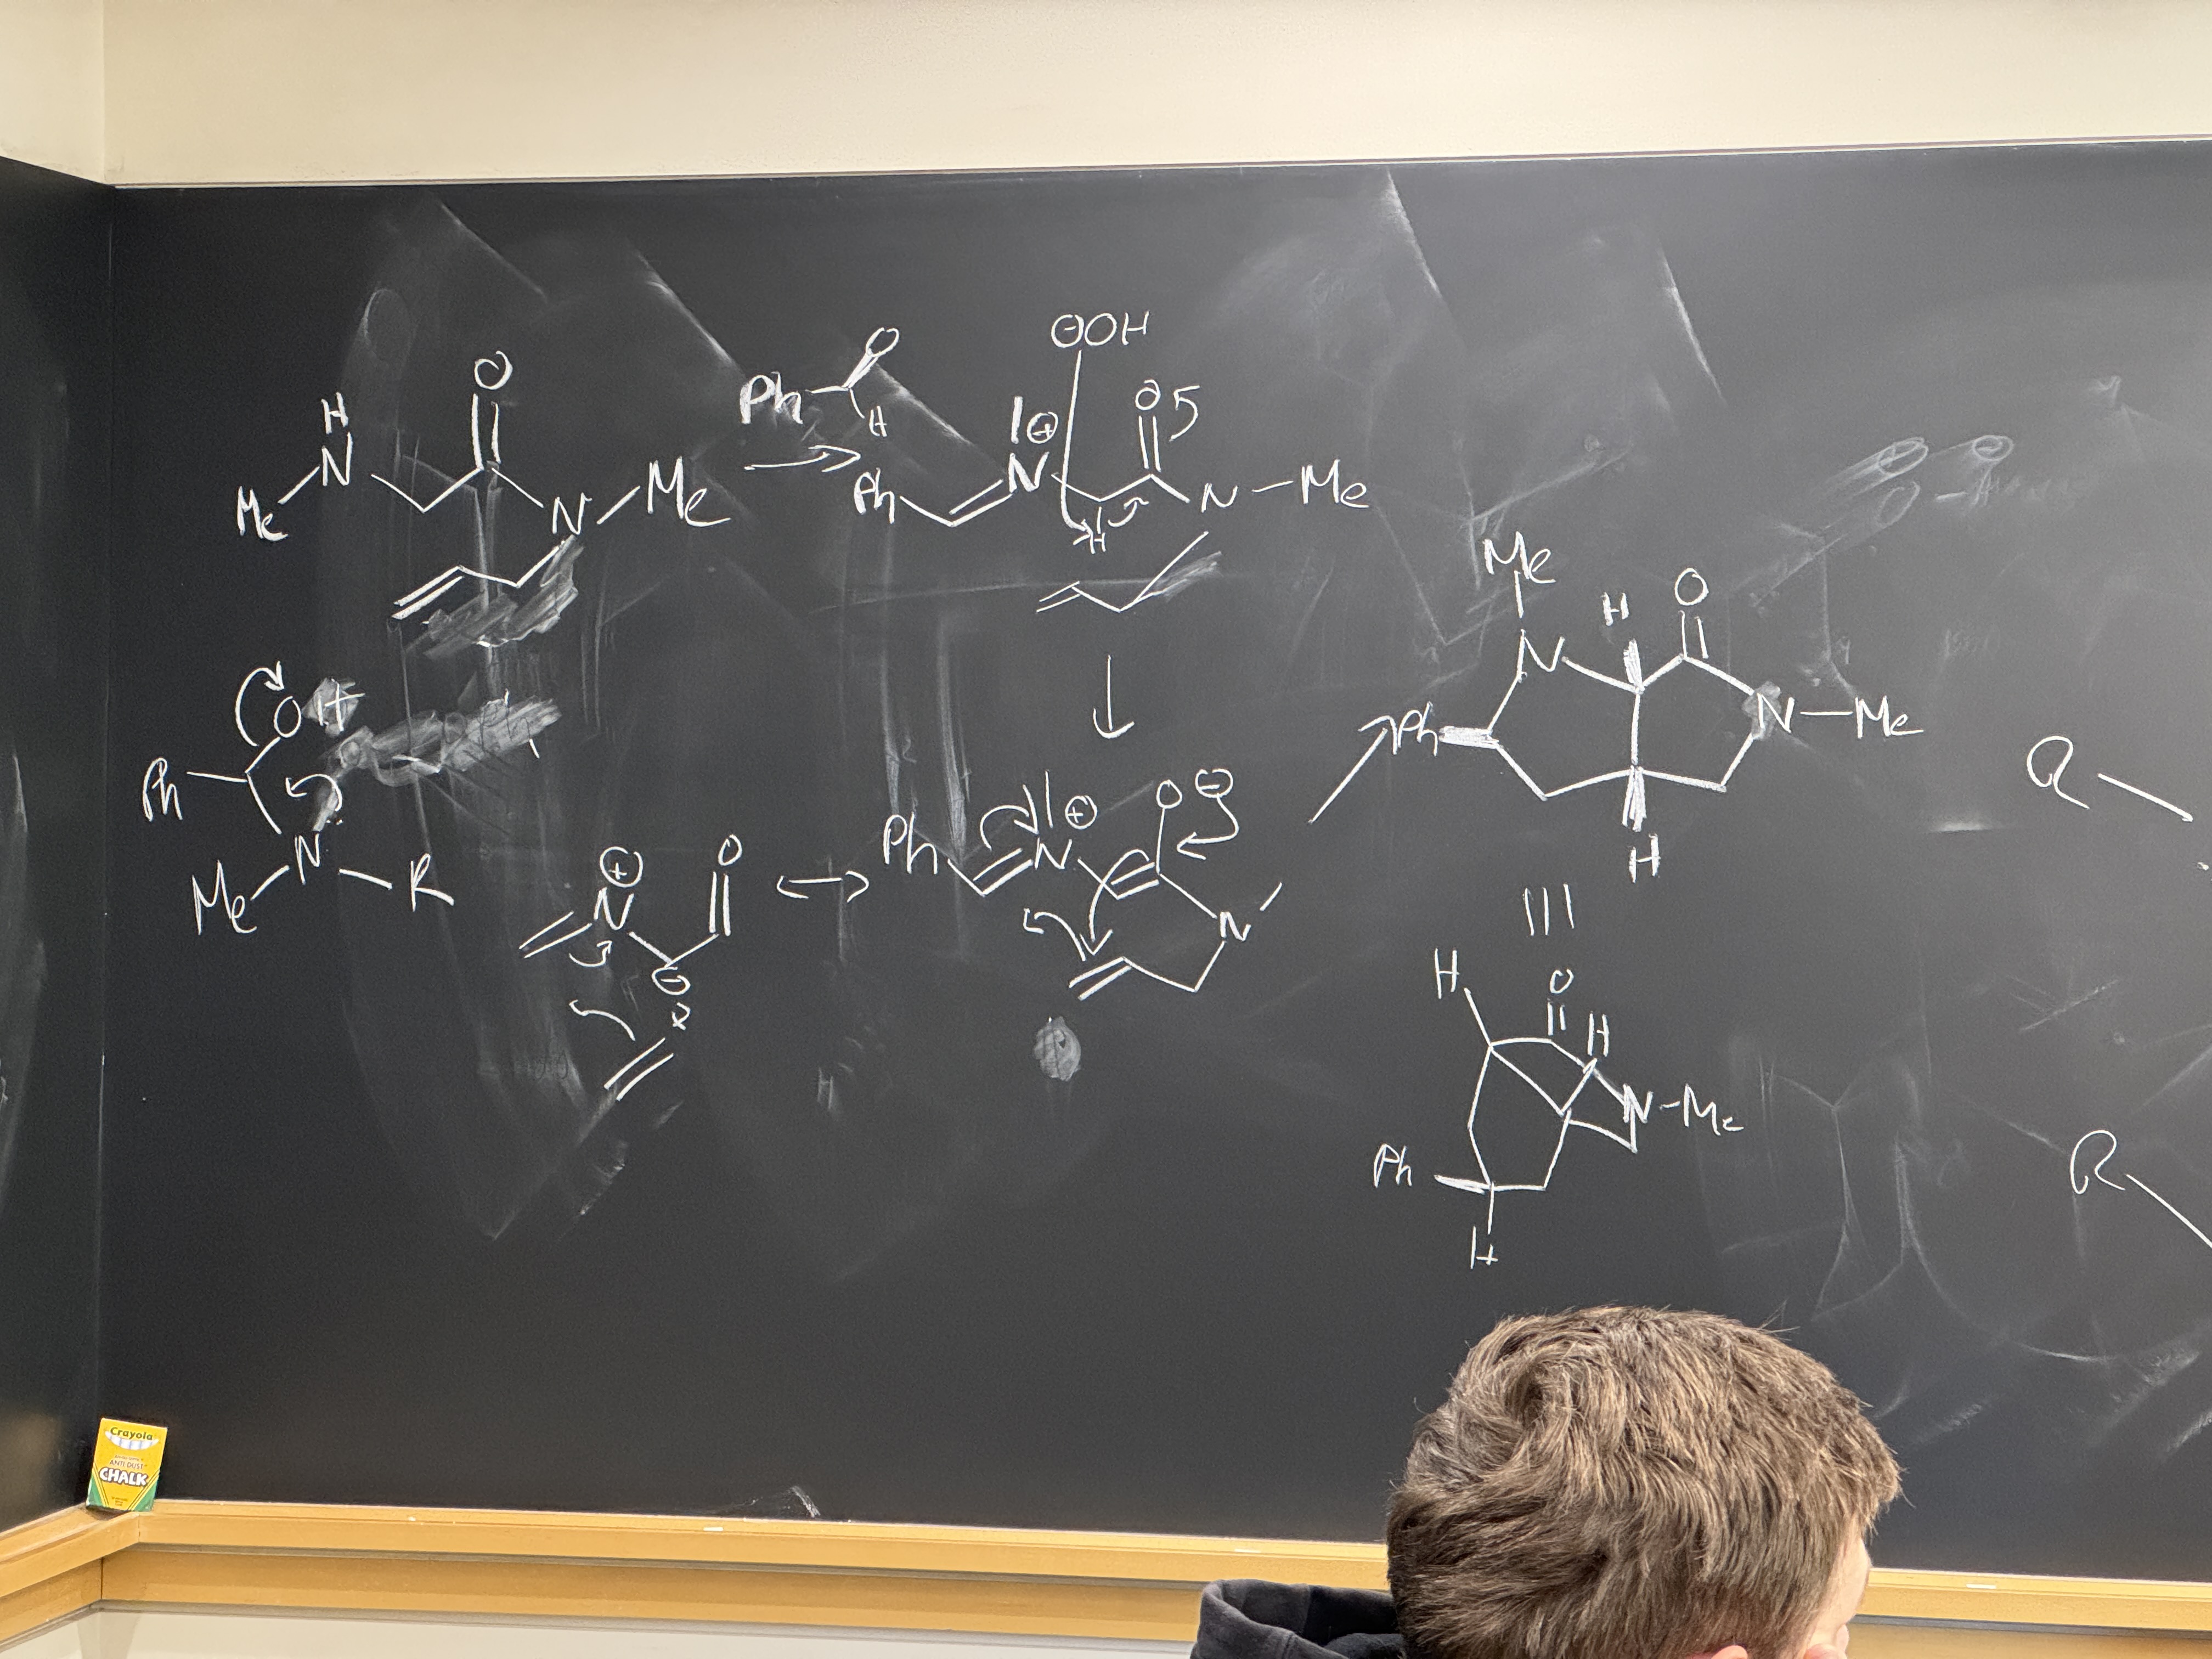 O
H
N
Me
N
Me
Ph
O
H
⊖OH
⊕
O
N
Ph
H
N
Me
OH
Ph
N
Me
R
⊕
N
O
⊖
Ph
⊕
N
O
⊖
N
Me
N
H
O
Ph
N
Me
H
H
O
H
N-Me
Ph
H
R
R
Crayola
ANTI-DUST
CHALK